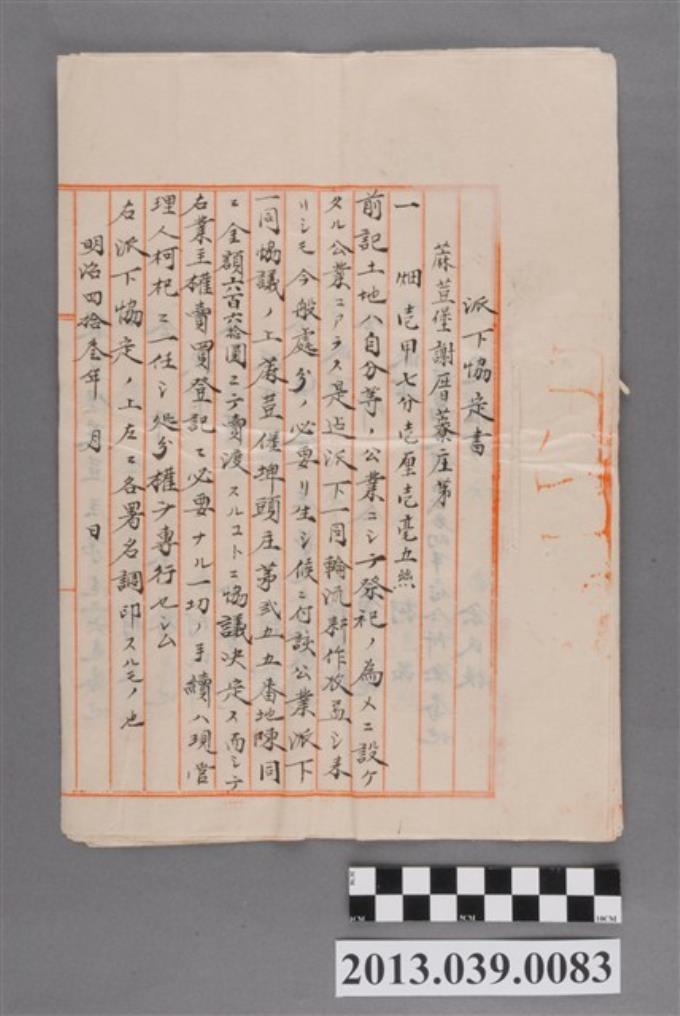 派下協定書
蔴荳堡謝厝藔庄第
一 畑壱甲七分壱厘壱毫五絲
前記土地ハ自分等ノ公業ニシテ祭祀ノ為メニ設ケ
タル公業ニアラス是迄派下一同輪流耕作収益シ来
リシモ今般處分ノ必要リ生シ候ニ付該公業派下
一同協議ノ上蔴荳堡埤頭庄第弐五五番地陳同
ニ金額六百六拾圓ニテ賣渡スルコトニ協議决定ス而シテ
右業主権賣買登記ニ必要ナル一切ノ手續ハ現管
理人柯杞ニ一任シ処分権ヲ専行セシム
右派下協定ノ上左ニ各署名調印スルモノ也
明治四拾叁年 月 日
2013.039.0083